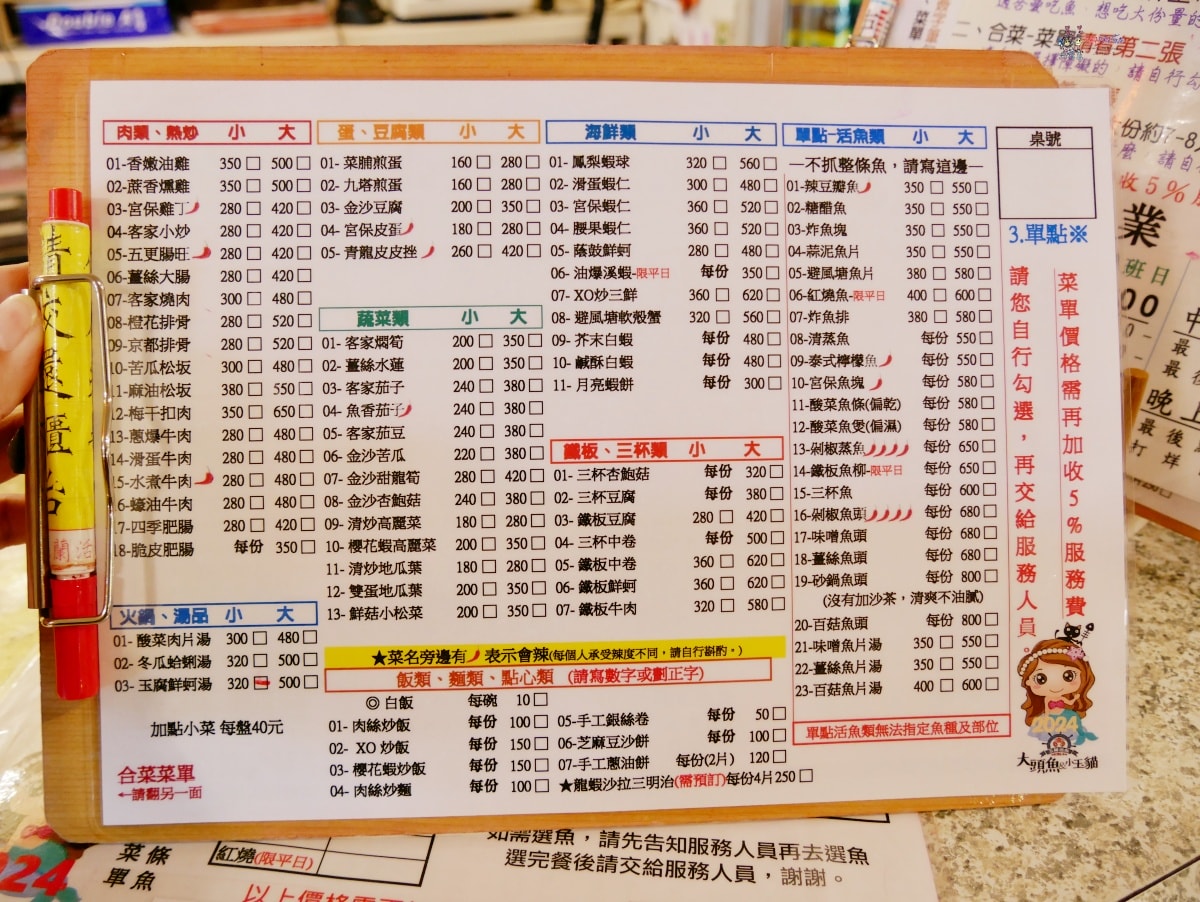 肉類、熱炒 小 大
01-香嫩油雞 350 500
02-蔗香燻雞 350 500
03-宮保雞丁 280 420
04-客家小炒 280 420
05-五更腸旺 280 420
06-薑絲大腸 280 420
07-客家燒肉 300 480
08-橙花排骨 280 520
09-京都排骨 280 520
10-苦瓜松坂 300 480
11-麻油松坂 380 550
12-梅干扣肉 350 650
13-蔥爆牛肉 280 480
14-滑蛋牛肉 280 480
15-水煮牛肉 280 480
16-蠔油牛肉 280 480
17-四季肥腸 280 420
18-脆皮肥腸 每份 350
火鍋、湯品 小 大
01- 酸菜肉片湯 300 480
02- 冬瓜蛤蜊湯 320 500
03- 玉腐鮮蚵湯 320 500
加點小菜 每盤40元
合菜菜單
←請翻另一面
蛋、豆腐類 小 大
01- 菜脯煎蛋 160 280
02- 九塔煎蛋 160 280
03- 金沙豆腐 200 350
04- 宮保皮蛋 180 280
05- 青龍皮皮挫 260 420
蔬菜類 小 大
01- 客家燜筍 200 350
02- 薑絲水蓮 200 350
03- 客家茄子 240 380
04- 魚香茄子 240 380
05- 客家茄豆 240 380
06- 金沙苦瓜 220 380
07- 金沙甜龍筍 280 420
08- 金沙杏鮑菇 240 380
09- 清炒高麗菜 180 280
10- 櫻花蝦高麗菜 200 350
11- 清炒地瓜葉 180 280
12- 雙蛋地瓜葉 200 350
13- 鮮菇小松菜 200 350
海鮮類 小 大
01- 鳳梨蝦球 320 560
02- 滑蛋蝦仁 300 480
03- 宮保蝦仁 360 520
04- 腰果蝦仁 360 520
05- 蔭鼓鮮蚵 280 480
06- 油爆溪蝦-限平日 每份 350
07- XO炒三鮮 360 620
08- 避風塘軟殼蟹 320 560
09- 芥末白蝦 每份 480
10- 鹹酥白蝦 每份 480
11- 月亮蝦餅 每份 300
鐵板、三杯類 小 大
01- 三杯杏鮑菇 每份 320
02- 三杯豆腐 每份 380
03- 鐵板豆腐 280 420
04- 三杯中卷 每份 500
05- 鐵板中卷 360 620
06- 鐵板鮮蚵 360 620
07- 鐵板牛肉 320 580
★菜名旁邊有 表示會辣(每個人承受辣度不同，請自行斟酌。)
飯類、麵類、點心類 (請寫數字或劃正字)
◎白飯 每碗 10
01- 肉絲炒飯 每份 100
02- XO 炒飯 每份 150
03- 櫻花蝦炒飯 每份 150
04- 肉絲炒麵 每份 100
05-手工銀絲卷 每份 50
06-芝麻豆沙餅 每份 100
07-手工蔥油餅 每份(2片) 120
★龍蝦沙拉三明治(需預訂)每份4片250
單點-活魚類 小 大
—不抓整條魚，請寫這邊—
01-辣豆瓣魚 350 550
02-糖醋魚 350 550
03-炸魚塊 350 550
04-蒜泥魚片 350 550
05-避風塘魚片 380 580
06-紅燒魚-限平日 400 600
07-炸魚排 380 580
08-清蒸魚 每份 550
09-泰式檸檬魚 每份 550
10-宮保魚塊 每份 580
11-酸菜魚條(偏乾) 每份 580
12-酸菜魚煲(偏濕) 每份 580
13-剁椒蒸魚 每份 650
14-鐵板魚柳-限平日 每份 650
15-三杯魚 每份 600
16-剁椒魚頭 每份 650
17-味噌魚頭 每份 680
18-薑絲魚頭 每份 680
19-砂鍋魚頭 每份 800
(沒有加沙茶，清爽不油膩)
20-百菇魚頭 每份 800
21-味噌魚片湯 350 550
22-薑絲魚片湯 350 550
23-百菇魚片湯 400 600
單點活魚類無法指定魚種及部位
桌號
3.單點※
菜單價格需再加收5%服務費
請您自行勾選，再交給服務人員。
2024
大頭魚&小玉貓
二、合菜-菜單請看第二張
業
班日
晚上
菜條
單魚
紅燒(限平日)
如需選魚，請先告知服務人員再去選魚
選完餐後請交給服務人員，謝謝。